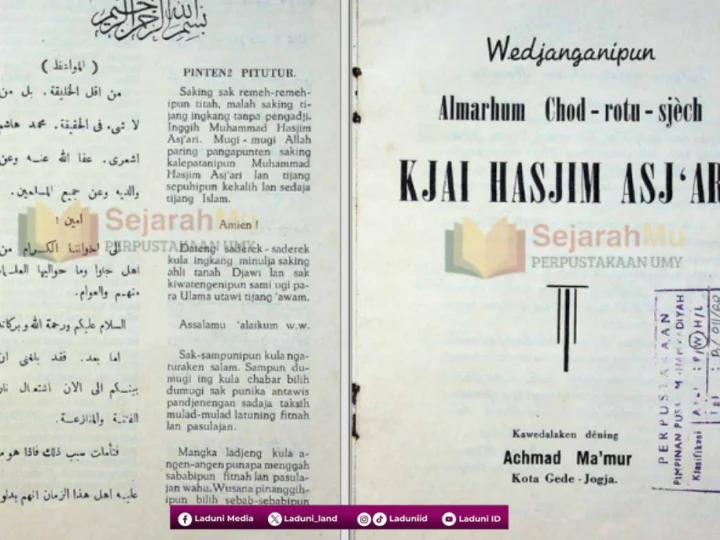 بسم الله الرحمن الرحيم
( المواعظ )
من اقل الخليقة. بل من
لا شىء فى الحقيقة. محمد هاشم
اشعرى. عفا الله عنه وعن
والديه وعن جميع المسلمين.
امين !
الى اخواننا الكرام من
اهل جاوا وما حواليها العلماء
منهم والعوام.
السلام عليكم ورحمة الله وبركاته
اما بعد. فقد بلغنى ان
بينكم الى الان اشتعال نار
الفتنة والمنازعة.
فتأملت سبب ذلك فاذا هو ما
عليه اهل هذا الزمان انهم بدلوا
PINTEN2 PITUTUR.
Saking sak remeh-remeh-
ipun titah, malah saking ti-
jang ingkang tanpa pengadji.
Inggih Muhammad Hasjim
Asj'ari. Mugi-mugi Allah
paring pangapunten saking
kalepatanipun Muhammad
Hasjim Asj'ari lan tijang
sepuhipun kekalih lan sedaja
tijang Islam.
Amien !
Dateng saderek-saderek
kula ingkang minulja saking
ahli tanah Djawi lan sak
kiwatengenipun sami ugi pa-
ra Ulama utawi tijang 'awam.
Assalamu 'alaikum w.w.
Sak-sampunipun kula nga-
turaken salam. Sampun du-
mugi ing kula chabar bilih
dumugi sak punika antawis
pandjenengan sadaja taksih
mulad-mulad latuning fitnah
lan pasulajan.
Mangka ladjeng kula a-
ngen-angen punapa menggah
sababipun fitnah lan pasula-
jan wahu. Wusana pinanggih-
ipun bilih sebab-sebabipun
Wedjanganipun
Almarhum Chod-rotu-sjèch
KJAI HASJIM ASJ'AR
Kawedalaken déning
Achmad Ma'mur
Kota Gede - Jogja.
PERPUSTAKAAN
Klasifikasi
SejarahMu
PERPUSTAKAAN UMY
SejarahMu
PERPUSTAKAAN UMY
Laduni Media Laduni_land Laduniid Laduni ID